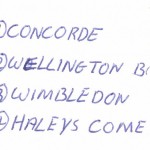 ①CONCORDE
②WELLINGTON B
③WIMBLEDON
④HALEYS COME